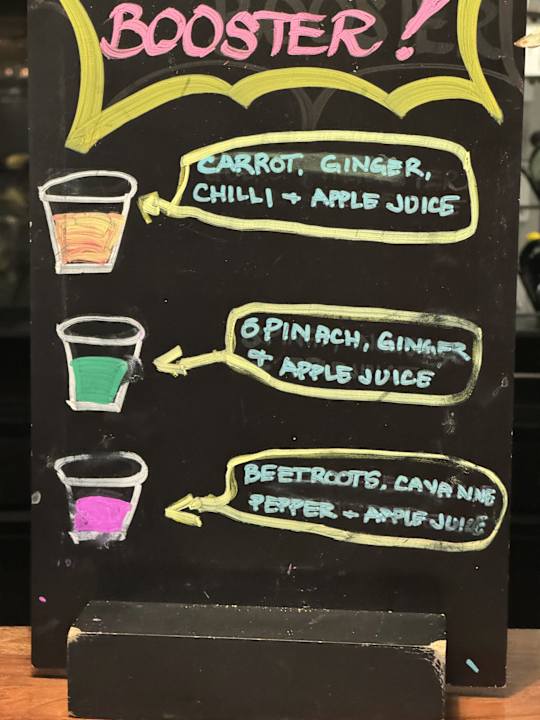 BOOSTER!
CARROT, GINGER,
CHILLI + APPLE JUICE
SPINACH, GINGER
+ APPLE JUICE
BEETROOTS, CAYANNE
PEPPER + APPLE JUICE